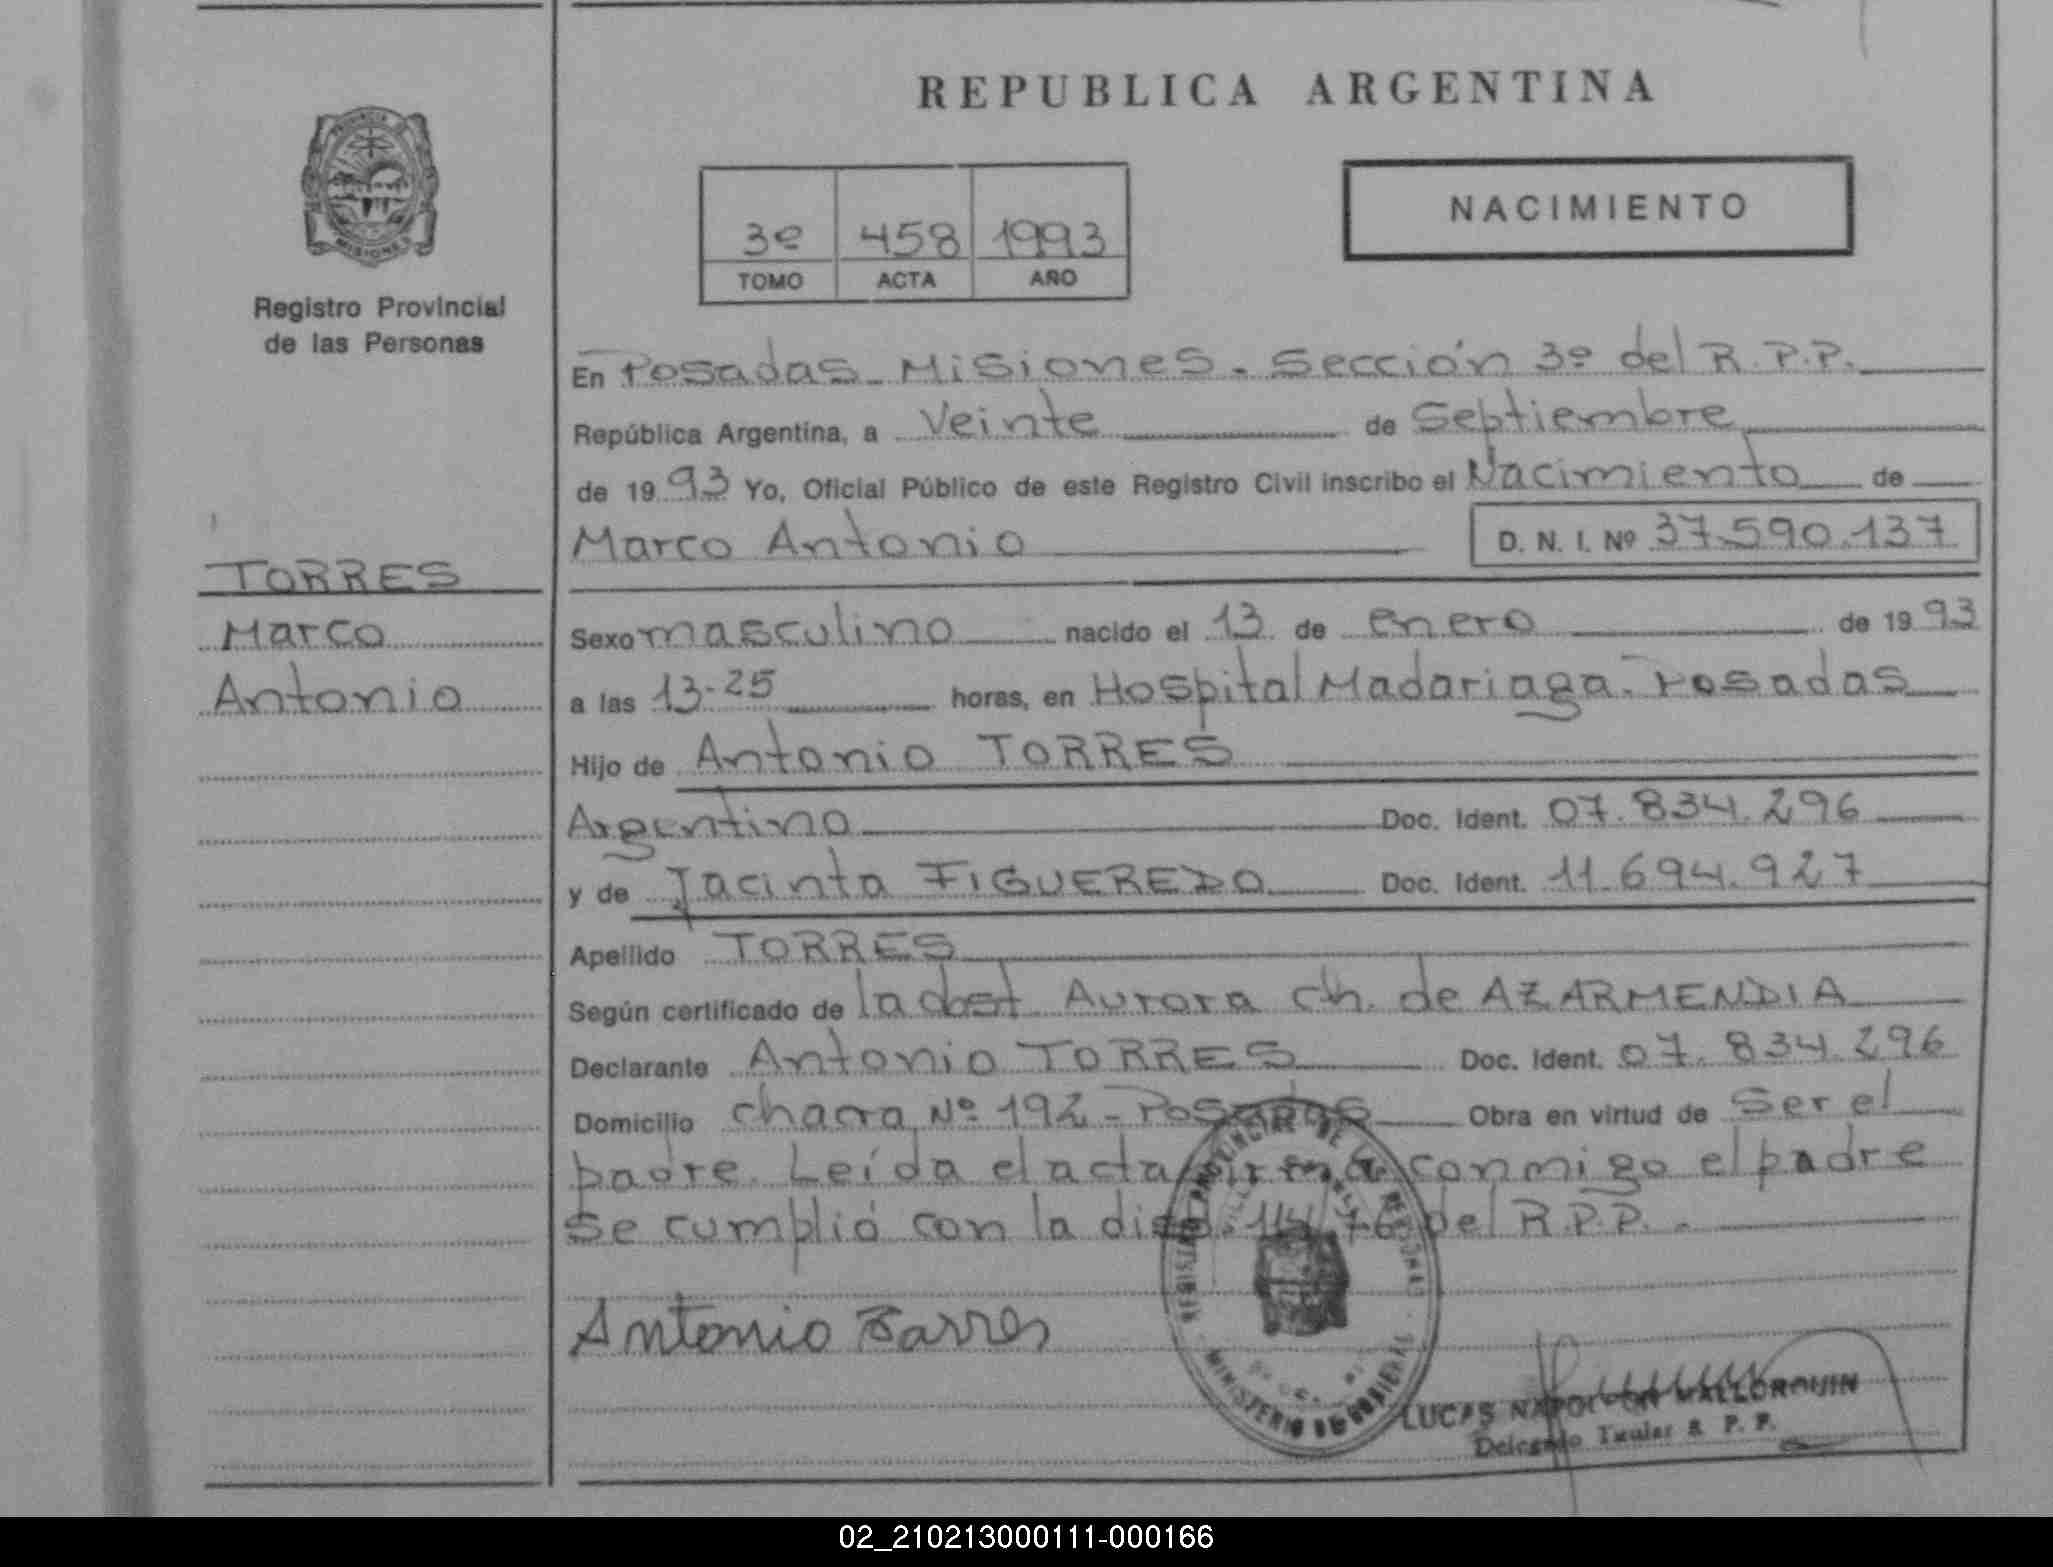 REPUBLICA ARGENTINA
PROVINCIA DE
MISIONES
Registro Provincial
de las Personas
3º 458 1993
TOMO ACTA AÑO
NACIMIENTO
En Posadas Misiones. Sección 3º del R.P.P.
República Argentina, a Veinte de Septiembre
de 1993 Yo, Oficial Público de este Registro Civil inscribo el Nacimiento de
Marco Antonio D. N. I. Nº 37.590.137
TORRES
Marco
Antonio
Sexo masculino nacido el 13 de enero de 1993
a las 13-25 horas, en Hospital Madariaga. Posadas
Hijo de Antonio TORRES
Argentino Doc. Ident. 07.834.296
y de Jacinta FIGUEREDO Doc. Ident. 11.694.927
Apellido TORRES
Según certificado de la obst Aurora Ch. de AZARMENDIA
Declarante Antonio TORRES Doc. Ident. 07.834.296
Domicilio chacra Nº 192 - Posadas Obra en virtud de Ser el
padre. Leída el acta firma conmigo el padre
Se cumplió con la disp. /76 del R.P.P.
Antonio Torres
MINISTERIO DE GOBIERNO
LUCAS NAPOLEON MALLORQUIN
Delegado Titular R. P. P.
02_210213000111-000166